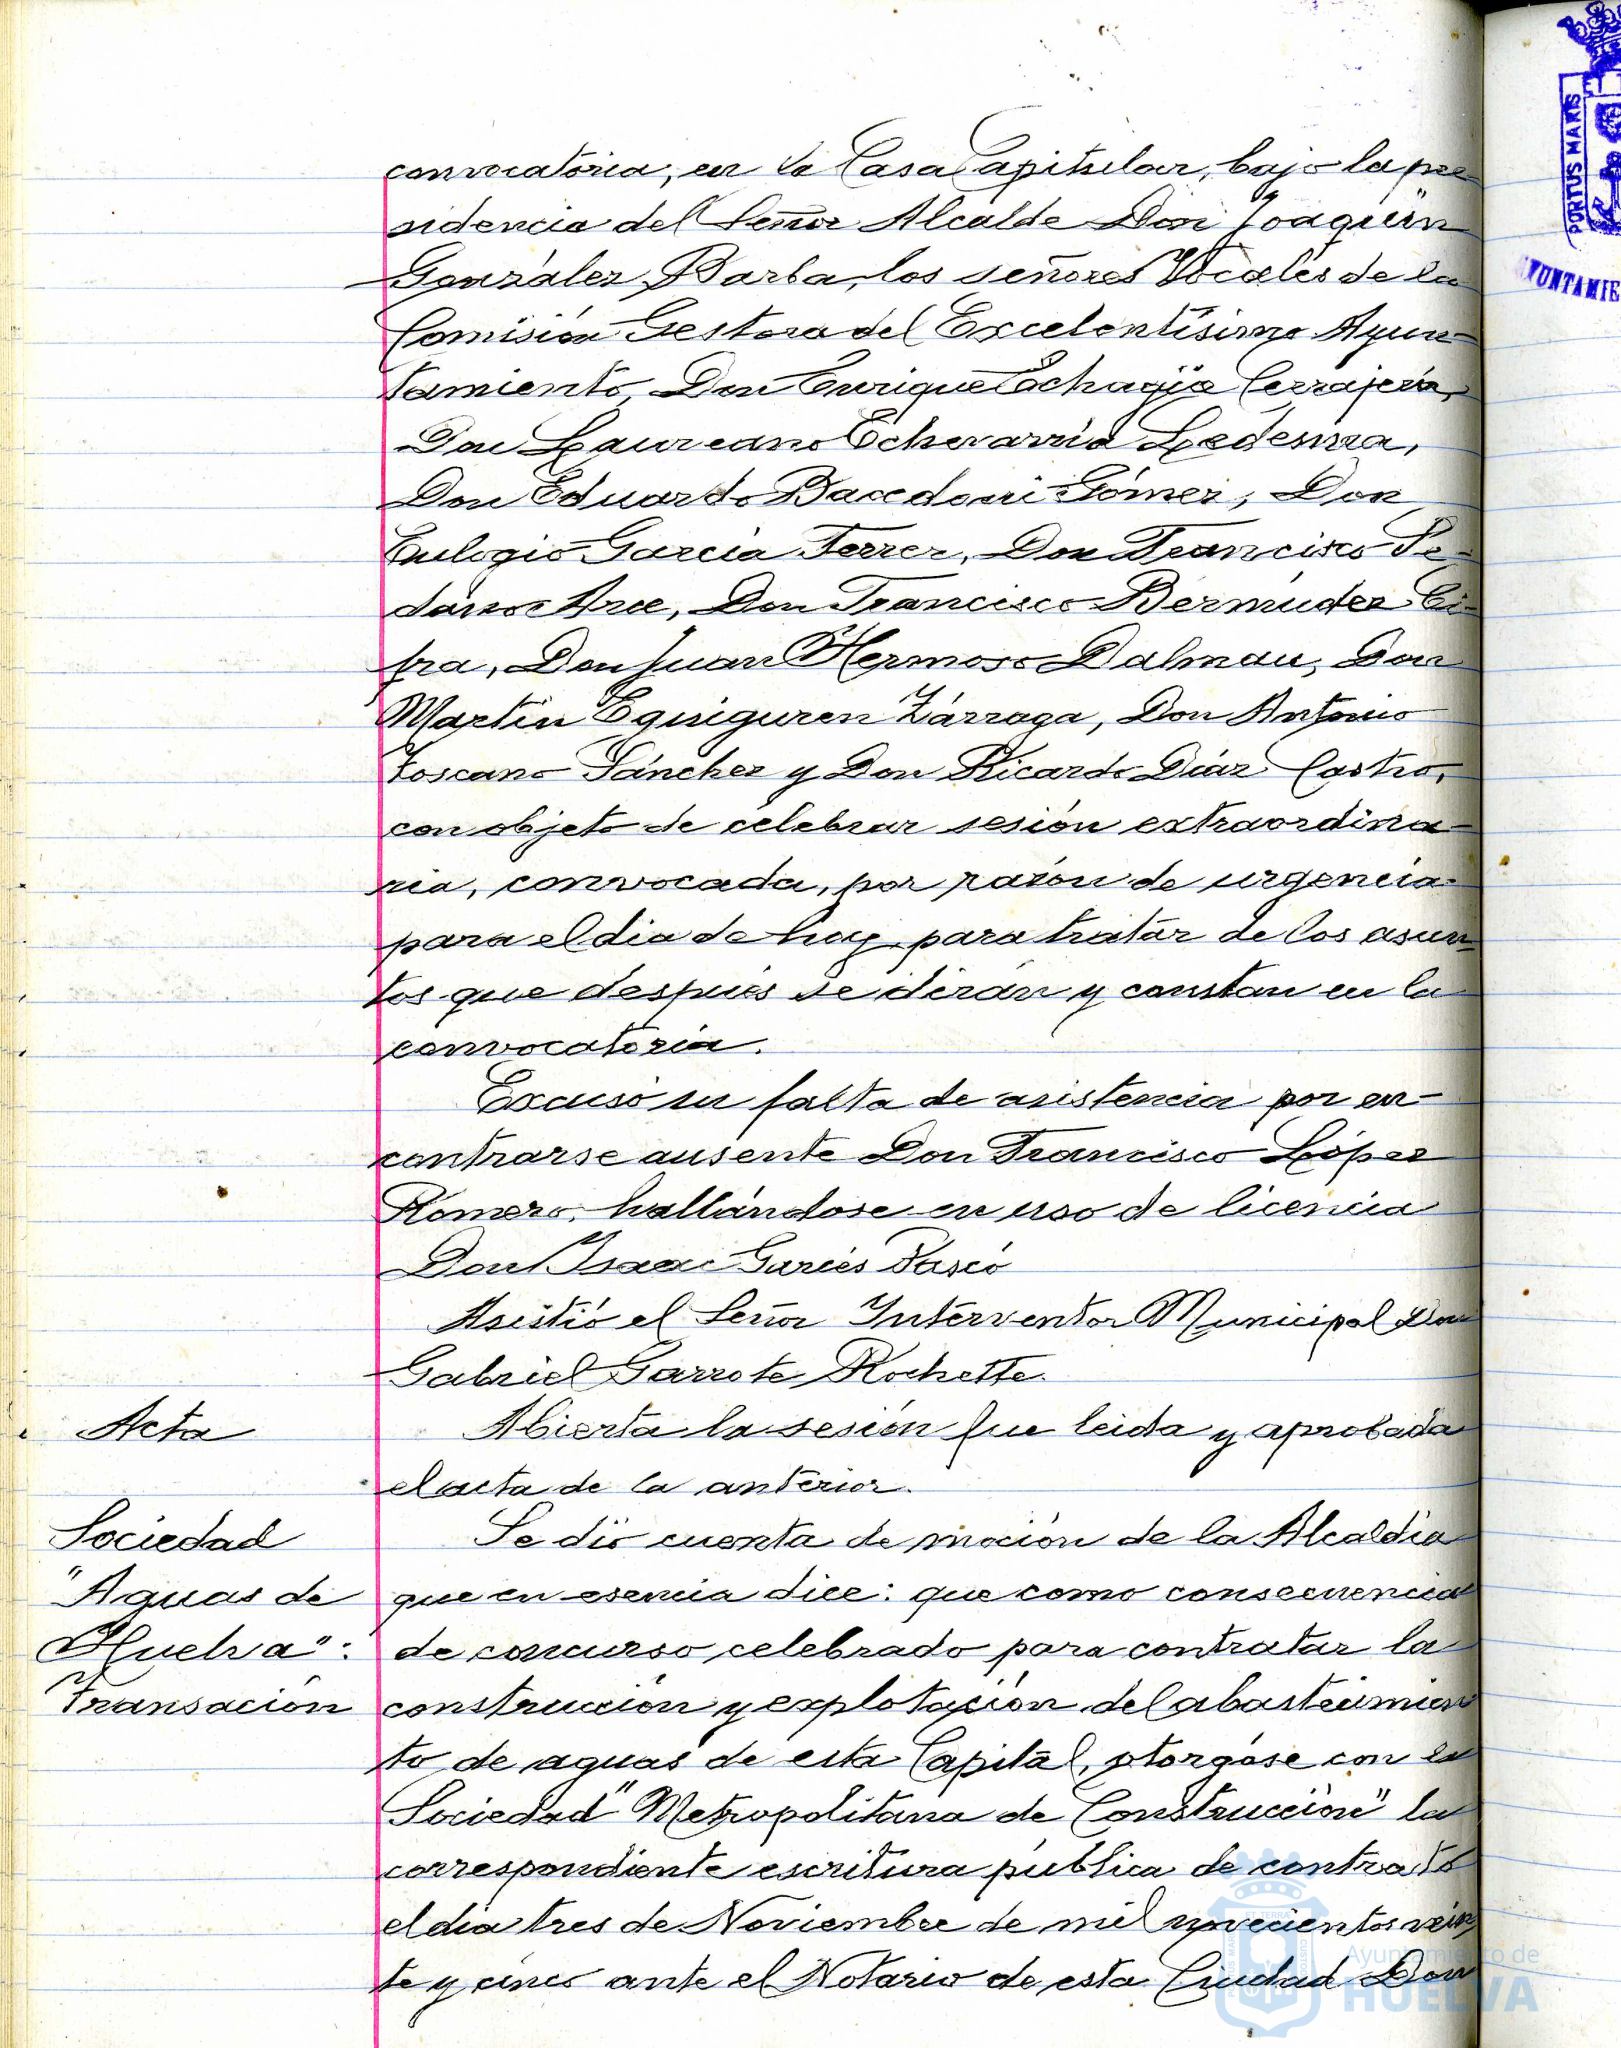 convocatoria, en la Casa Capitular, bajo la pre-
sidencia del Señor Alcalde Don Joaquín
González Barba, los señores Vocales de la
Comisión Gestora del Excelentísimo Ayun-
tamiento, Don Enrique Echagüe Cerrajería,
Don Laureano Echevarría Ledesma,
Don Eduardo Bacedoni Gómez, Don
Eulogio García Ferrer, Don Francisco
Arce, Don Francisco Bermúdez Ci-
fra, Don Juan Hermoso Dalmau, Don
Martín Eguiguren Zárraga, Don Antonio
Toscano Sánchez y Don Ricardo Díaz Castro,
con objeto de celebrar sesión extraordina-
ria, convocada, por razón de urgencia
para el dia de hoy para tratar de los asun-
tos que después se dirán y constan en la
convocatoria.
Excusó su falta de asistencia por en-
contrarse ausente Don Francisco López
Romero, hallándose en uso de licencia
Don Isaac Garcés Pascó
Asistió el Señor Interventor Municipal Don
Gabriel Garrote Rochette.
Acta
Abierta la sesión fue leida y aprobada
el acta de la anterior.
Sociedad
"Aguas de
Huelva":
Transación
Se dió cuenta de moción de la Alcaldía
que en esencia dice: que como consecuencia
de concurso celebrado para contratar la
construcción y explotación del abastecimien
to de aguas de esta Capital, otorgóse con la
Sociedad "Metropolitana de Construcción" la
correspondiente escritura pública de contrato
el día tres de Noviembre de mil novecientos vein
te y cinco ante el Notario de esta Ciudad Don
PORTUS MARIS
Ayuntamiento de
HUELVA